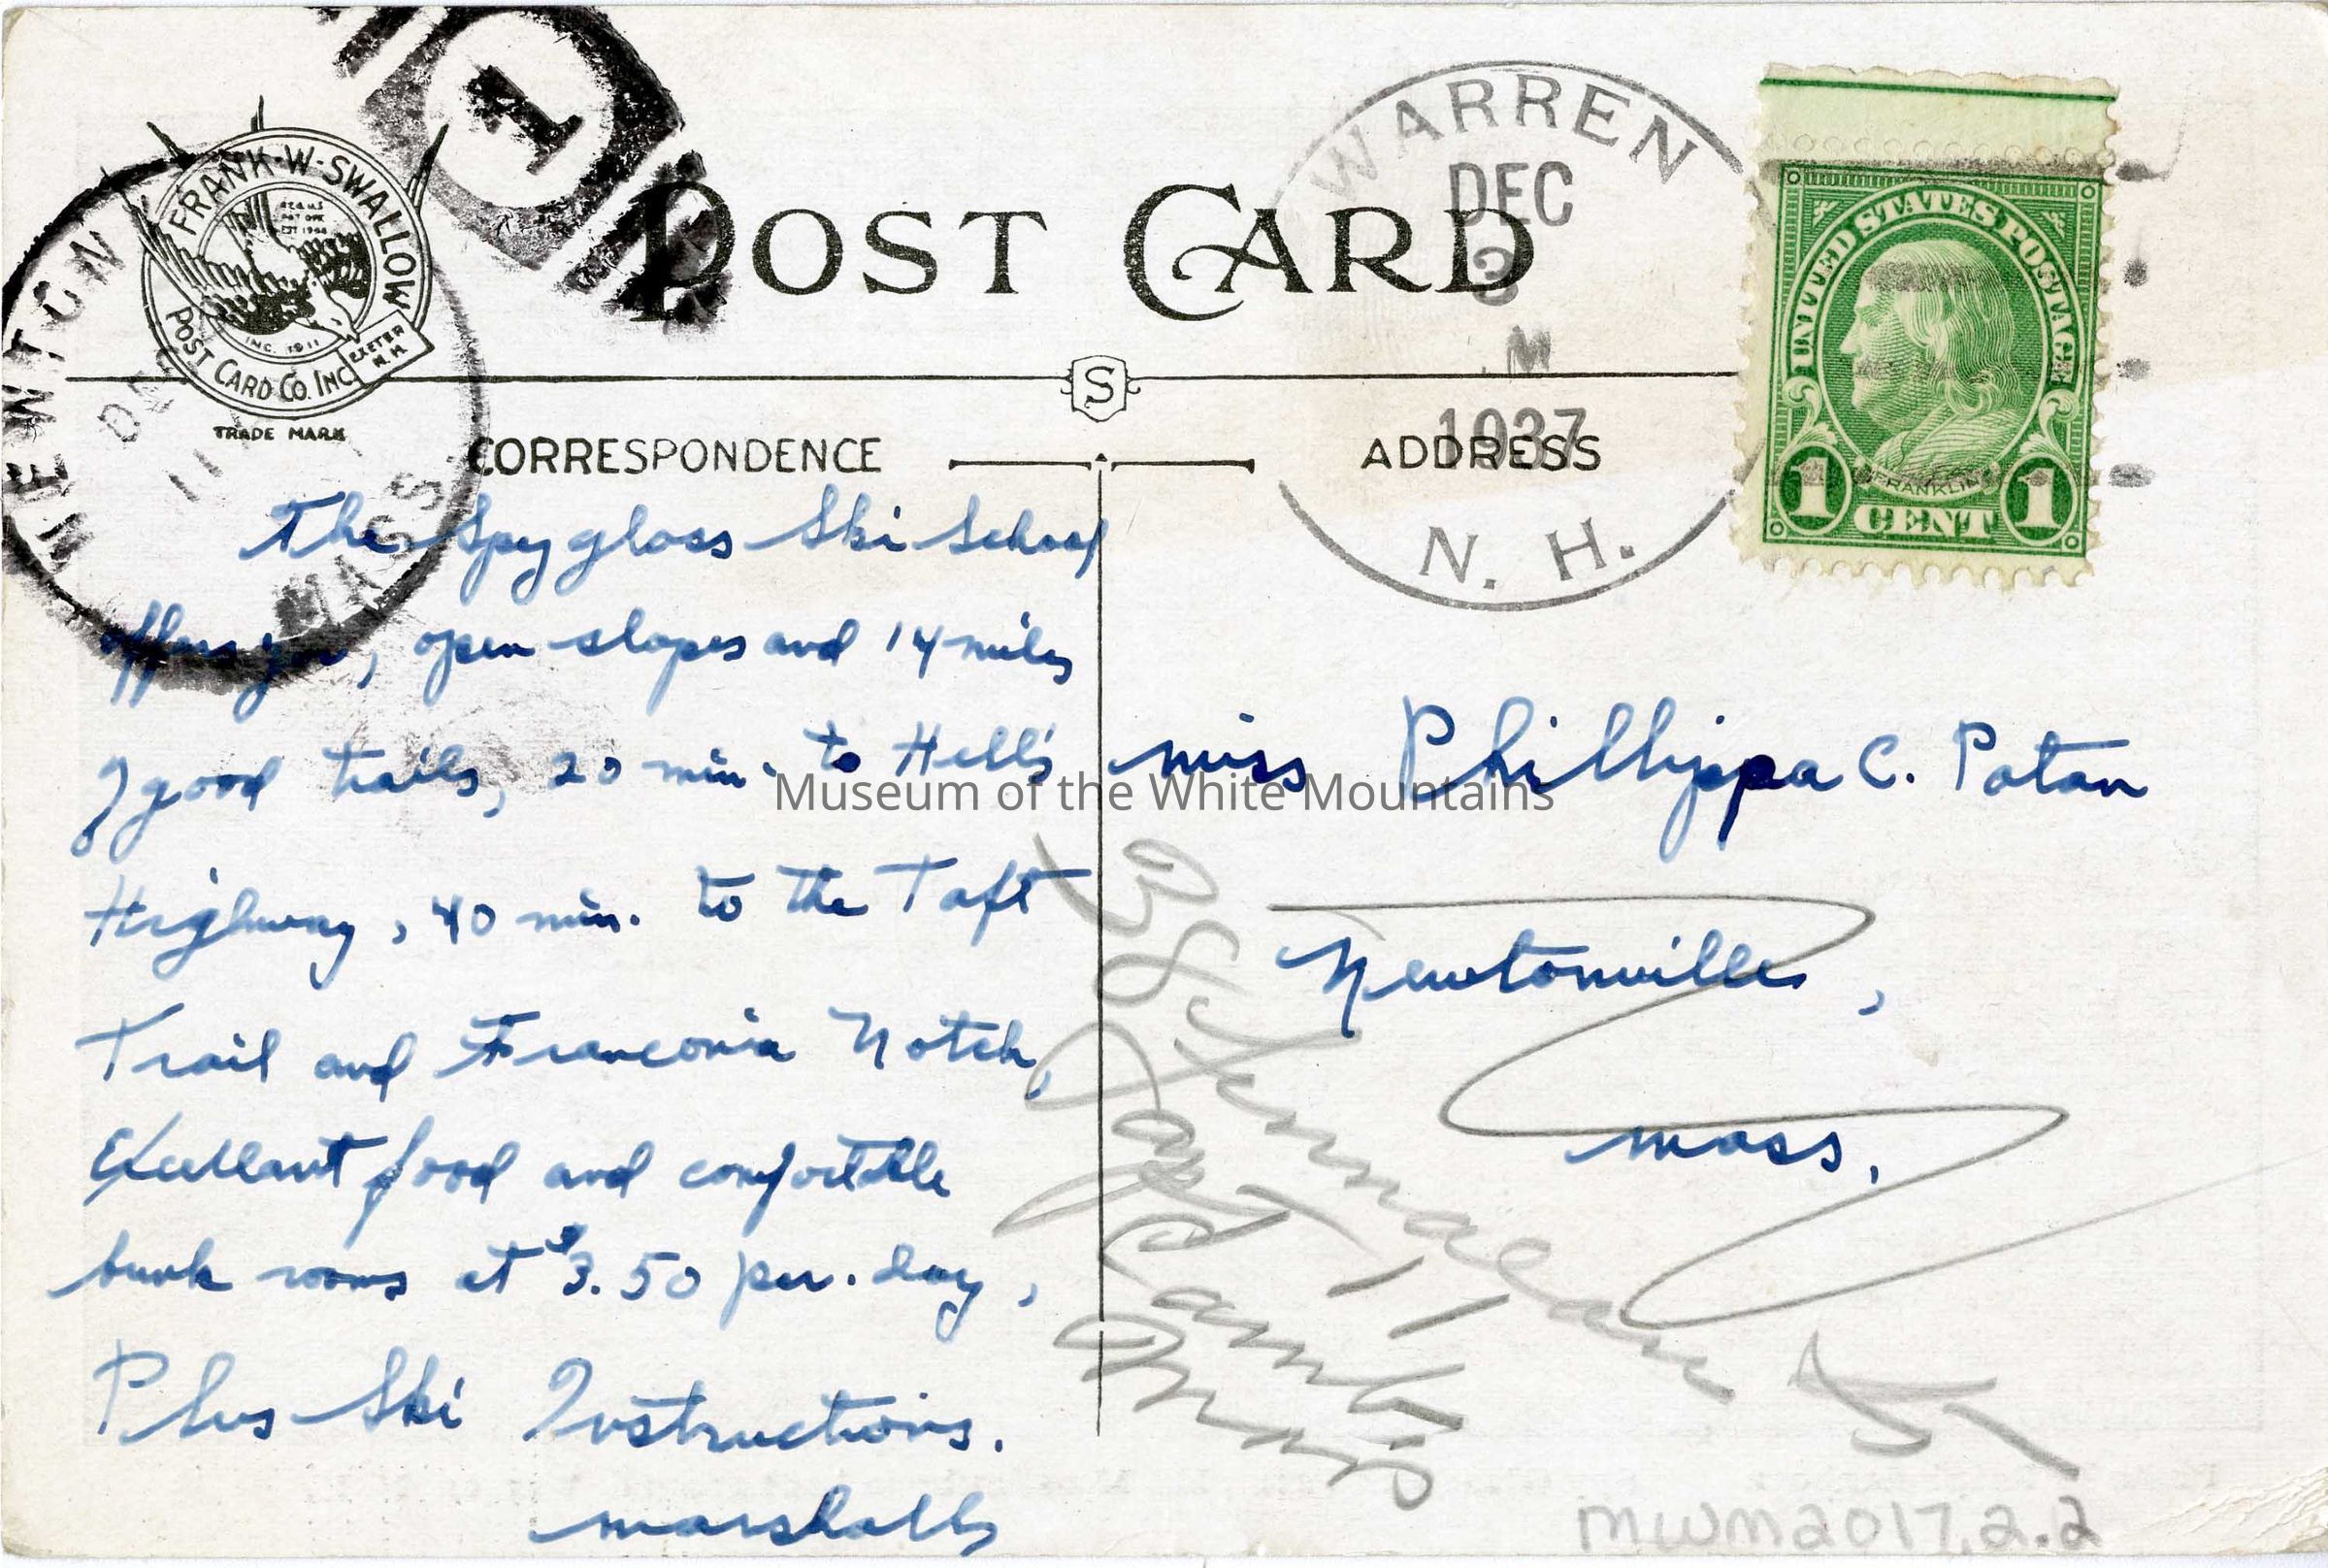 1
FRANK·W·SWALLOW
POST CARD CO. INC.
INC. 1911
EXETER
N.H.
TRADE MARK
NEWTON
MASS
POST CARD
WARREN
DEC
3
M
1937
N. H.
UNITED STATES POSTAGE
FRANKLIN
1 CENT 1
S
CORRESPONDENCE
ADDRESS
The Spyglass Ski School
offers you, open slopes and 14 miles
of good trails, 20 min. to Hell's
Highway, 40 min. to the Taft
Trail and Franconia Notch,
Excellant food and comfortable
bunk rooms at $3.50 per. day,
Plus Ski Instructions.
Marshalls
Miss Phillippa C. Patan
Newtonville,
Mass.
38
Museum of the White Mountains
MWM2017.2.2